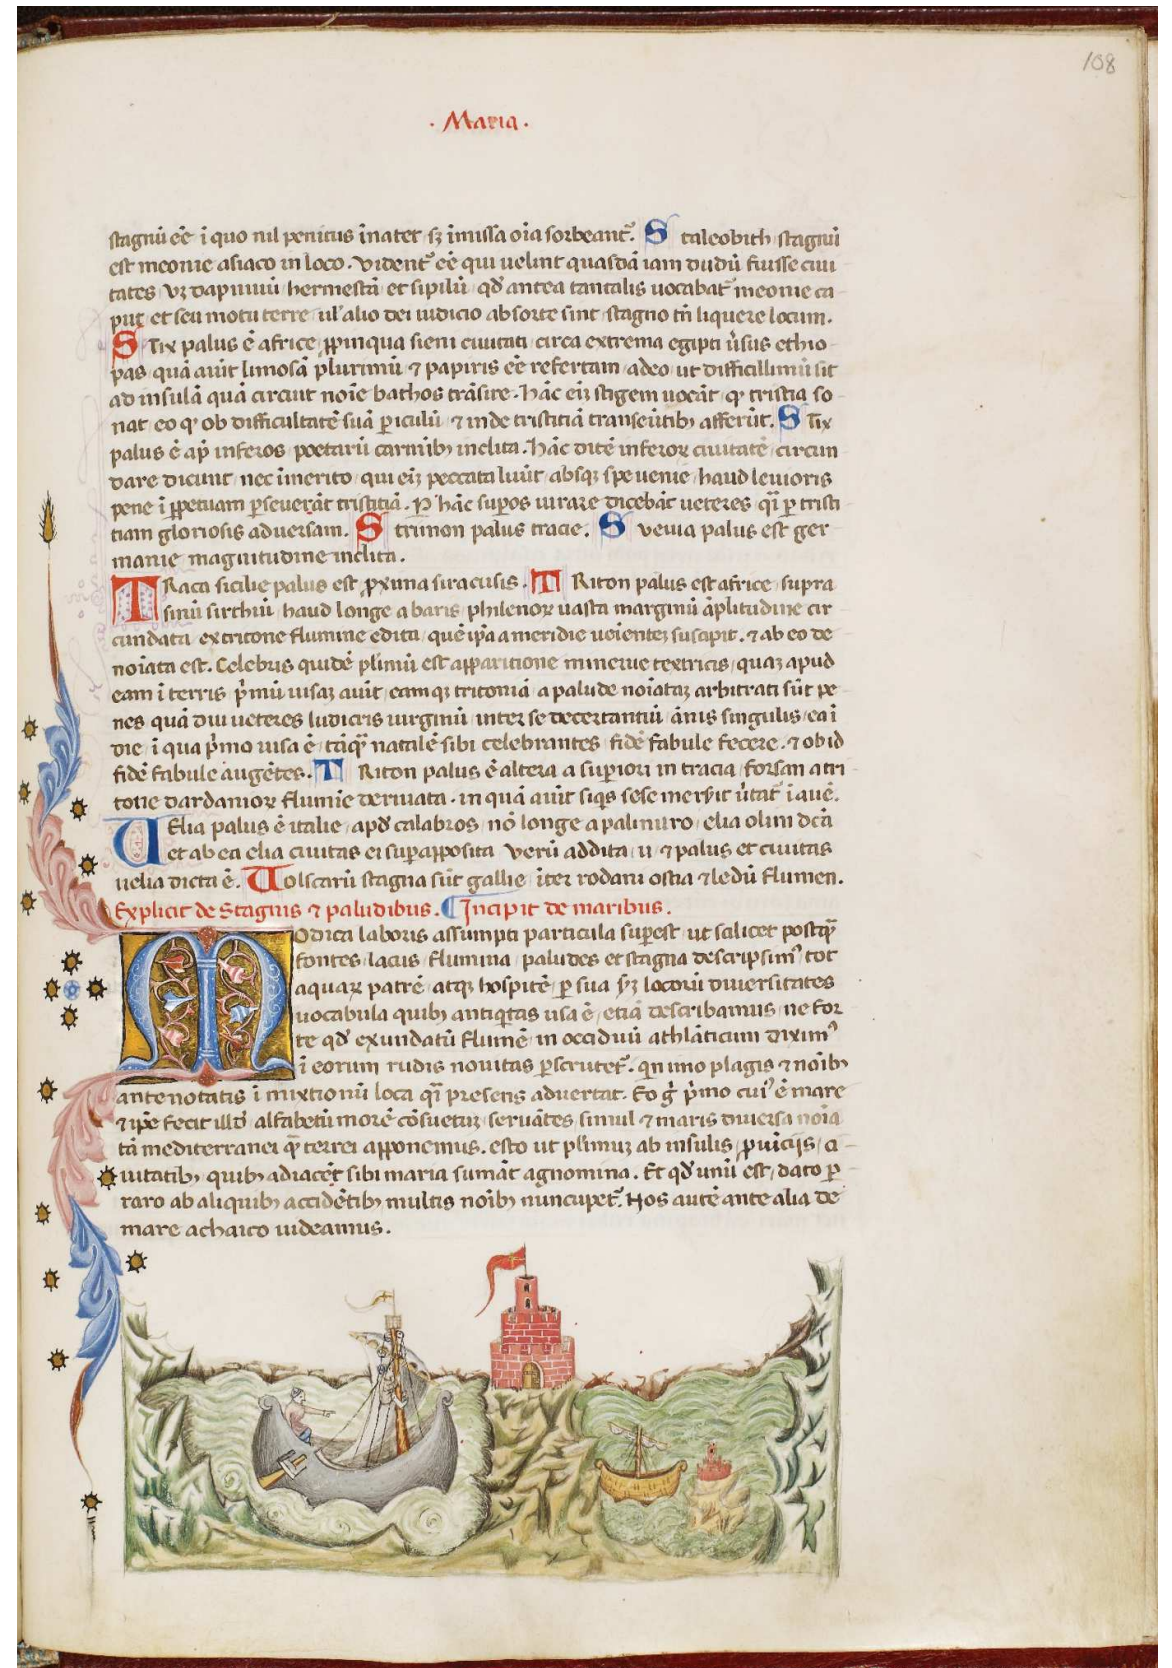 108
· Maria ·
stagnū eē ī quo nil penitus īnatet sȝ īmissa oīa sorbeant᷑. S taleobith stagnū
est meonie asiaco in loco. vident᷑ eē qui velint quasdā iam dudū fuisse ciui
tates vȝ dapinuū hermestā et sipilū qd̄ antea tantalis uocabat᷑ meonie ca
put et seu motu terre ul' alio dei iudicio absorte sint stagno tn̄ liquere locum.
STix palus ē africe ꝓpinqua sieni ciuitati circa extrema egipti u̓sus ethio
pas quā aiūt limosā plurimū ⁊ papiris eē refertam adeo ut difficillimū sit
ad insulā quā circuit noīe bathos trāsire. Hāc eīȝ stigem uocāt qꝫ tristia so
nat eo qꝫ ob difficultatē suā ꝑiculū ⁊ inde tristitiā transeūtibꝫ afferūt. S Tix
palus ē ap̄ inferos poetarū carmībꝫ inclita. Hāc ditē inferoꝝ ciuitatē circun
dare dicunt nec īmerito qui eīȝ peccata luūt absqꝫ spe uenie haud leuioris
pene ī ꝑpetuam ꝑseuerāt tristitiā. P hāc supos iurare dicebāt ueteres qͣī ꝑ tristi
tiam gloriosis aduersam. S trimon palus tracie. S veuia palus est ger
manie magnitudine inclita.
TRaca sicilie palus est ꝓxima siracusis. T Riton palus est africe supra
sinū sirthiū haud longe a baris philenoꝝ uasta marginū āplitudine cir
cundata ex tritone flumine edita quē ip̄a a meridie ueientēȝ suscipit. ⁊ ab eo de
noīata est. Celebris quidē plīmū est apparitione minerue textricis quaȝ apud
eam ī terris p̓mū uisaȝ aiūt eamqꝫ tritoniā a palude noīataȝ arbitrati sūt pe
nes quā diu ueteres ludicris uirginū inter se decertantiū ānis singulis ea ī
die ī qua p̓mo uisa ē tāqͣȝ natalē sibi celebrantes fidē fabule fecere. ⁊ ob id
fidē fabule augētes. T Riton palus ē altera a superiori in tracia forsan a tri
tone dardanioꝝ flumīe deriuata. in quā aiūt siqͥs sese merserit u̓tat᷑ ī auē.
UElia palus ē italie apd̄ calabros nō longe a palinuro elia olim dcā
et ab ea elia ciuitas ei supapposita verū addita u ⁊ palus et ciuitas
uelia dicta ē. Uolscarū stagna sūt gallie īter rodani ostia ⁊ ledū flumen.
Explicit de Stagnis ⁊ paludibus. ¶ Incipit de maribus.
MOdica laboris assumpti particula supest ut scilicet postqͣȝ
fontes lacus flumina paludes et stagna descripsim᷒ tot
aquaꝝ patrē atqꝫ hospitē ꝑ sua sȝ locorū diuersitates
uocabula quibꝫ antiqͥtas usa ē etiā describamus ne for
te qd̄ exundatū flumē in occiduū athlāticum dixim᷒
ī eorum rudis nouitas ꝑscrutet᷑. qn īmo plagis ⁊ noībꝫ
ante notatis ī mixtionū loca qͣī presens aduertat. Eo g̓ p̓mo cui᷒ ē mare
⁊ ip̄e fecit illd̓ alfabetū morē cōsuetuȝ seruātes simul ⁊ maris diuersa noīa
tā mediterranei qͣȝ terrei apponemus. esto ut plīmuȝ ab insulis ꝓuīcijs ci
uitatibꝫ quibꝫ adiacēt sibi maria sumāt agnomina. Et qd̄ unū est dato ꝑ
raro ab aliquibꝫ accidētibꝫ multis noībꝫ nuncupet᷑. Nos autē ante alia de
mare achaico uideamus.